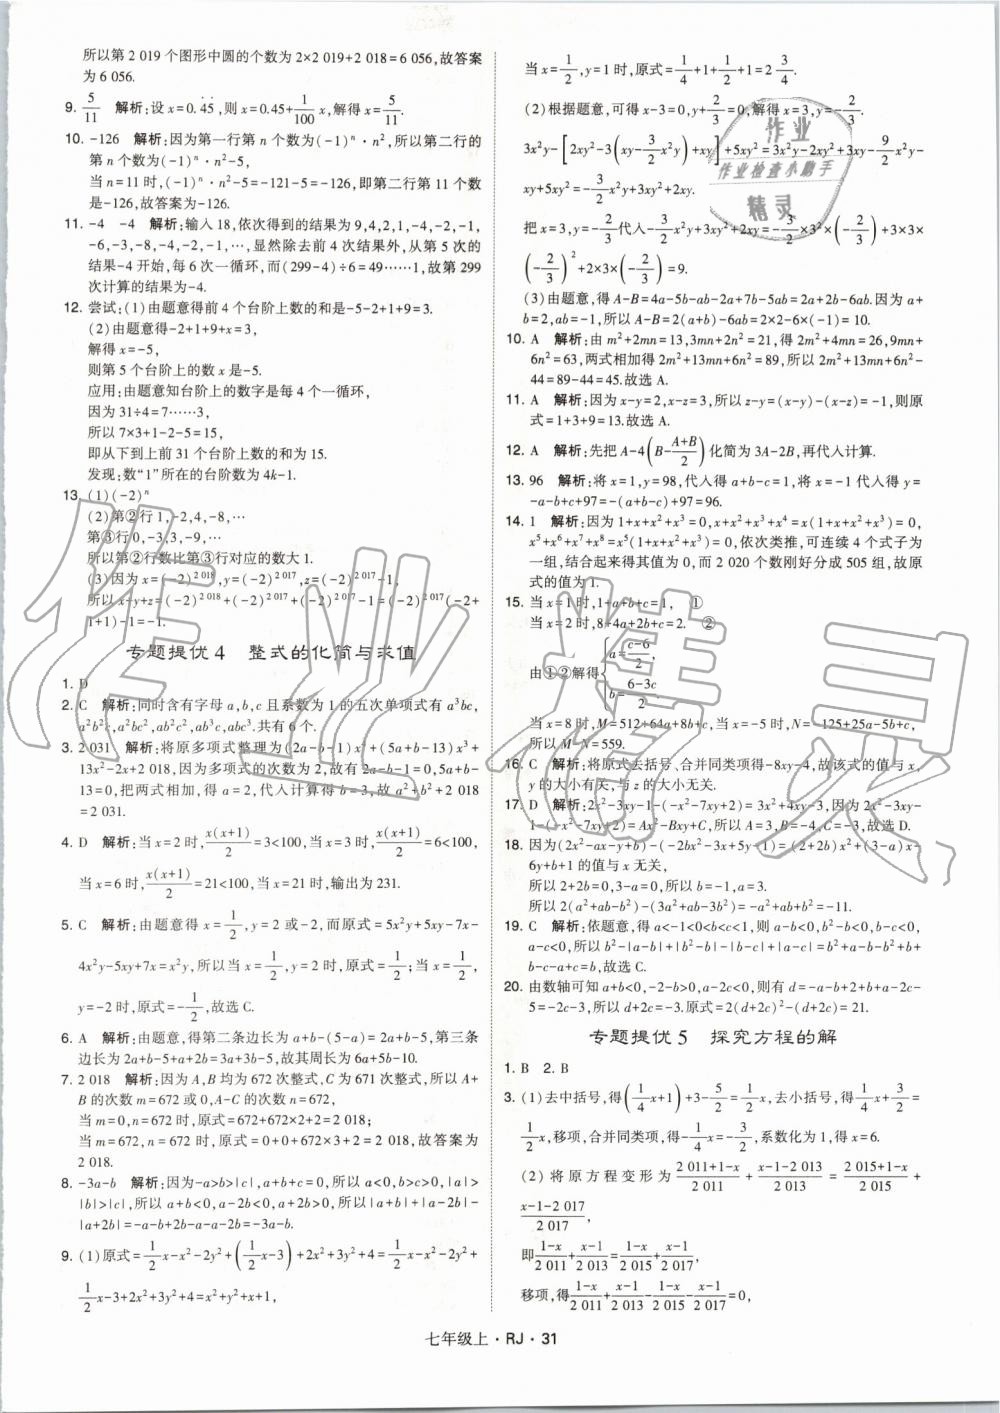 所以第 2 019 个图形中圆的个数为 2×2 019+2 018=6 056,故答案
为 6 056.
9. 5/11 解析:设 x=0.4̇5̇,则 x=0.45+1/100 x,解得 x=5/11.
10. -126 解析:因为第一行第 n 个数为(-1)^n·n²,所以第二行的
第 n 个数为(-1)^n·n²-5,
当 n=11 时,(-1)^n·n²-5=-121-5=-126,即第二行第 11 个数
是-126,故答案为-126.
11. -4 -4 解析:输入 18,依次得到的结果为 9,4,2,1,-4,-2,-1,
-6,-3,-8,-4,-2,-1,…,显然除去前 4 个结果外,从第 5 次的
结果-4 开始,每 6 次一循环,而(299-4)÷6=49……1,故第 299
次计算的结果为-4.
12. 尝试:(1)由题意得前 4 个台阶上数的和是-5-2+1+9=3.
(2)由题意得-2+1+9+x=3,
解得 x=-5,
则第 5 个台阶上的数 x 是-5.
应用:由题意知台阶上的数字是每 4 个一循环,
因为 31÷4=7……3,
所以 7×3+1-2-5=15,
即从下到上前 31 个台阶上数的和为 15.
发现:数“1”所在的台阶数为 4k-1.
13. (1)(-2)^n
(2)第②行 1,-2,4,-8,…
第③行 0,-3,3,-9,…
所以第②行数比第③行对应的数大 1.
(3)因为 x=(-2)^2 018,y=(-2)^2 017,z=(-2)^2 017-1,
所以 x+y+z=(-2)^2 018+(-2)^2 017+(-2)^2 017-1=(-2)^2 017(-2+
1+1)-1=-1.
专题提优 4 整式的化简与求值
1. D
2. C 解析:同时含有字母 a,b,c 且系数为 1 的五次单项式有 a³bc,
a²b²c,a²bc²,ab²c²,ab³c,abc³.共有 6 个.
3. 2 031 解析:将原多项式整理为(2a-b-1)x⁴+(5a+b-13)x³+
13x²-2x+2 018,因为多项式的次数为 2,故有 2a-b-1=0,5a+b-
13=0,把两式相加,得 a=2,代入计算得 b=3,故 a²+b²+2 018
=2 031.
4. D 解析:当 x=2 时,x(x+1)/2=3<100,当 x=3 时,x(x+1)/2=6<100,
当 x=6 时,x(x+1)/2=21<100,当 x=21 时,输出为 231.
5. C 解析:由题意得 x=1/2,y=2 或-2,而原式=5x²y+5xy-7x-
4x²y-5xy+7x=x²y,所以当 x=1/2,y=2 时,原式=1/2;当 x=1/2,
y=-2 时,原式=-1/2,故选 C.
6. A 解析:由题意,得第二条边长为 a+b-(5-a)=2a+b-5,第三条
边长为 2a+b-5+a+2b=3a+3b-5,故其周长为 6a+5b-10.
7. 2 018 解析:因为 A,B 均为 672 次整式,C 为 671 次整式,所以 A+
B 的次数 m=672 或 0,A-C 的次数 n=672,
当 m=0,n=672 时,原式=672+672×2+2=2 018;
当 m=672,n=672 时,原式=0+0+672×3+2=2 018,故答案为
2 018.
8. -3a-b 解析:因为-a>b>|c|,a+b+c=0,所以 a<0,b>c>0,|a|>
|b|>|c|,所以 a+b<0,a-2b<0,a+2b>0,所以|a+b|+|a-2b|-
|a+2b|=-a-b+2b-a-a-2b=-3a-b.
9. (1)原式=1/2 x-x²-2y²+(1/2 x-3)+2x²+3y²+4=1/2 x-x²-2y²+
1/2 x-3+2x²+3y²+4=x²+y²+x+1,
当 x=1/2,y=1 时,原式=1/4+1+1/2+1=2 3/4.
(2)根据题意,可得 x-3=0,y+2/3=0,解得 x=3,y=-2/3.
3x²y-[2xy²-3(xy-3/2 x²y)+xy]+5xy²=3x²y-2xy²+3xy-9/2 x²y-
xy+5xy²=-3/2 x²y+3xy²+2xy.
把 x=3,y=-2/3代入-3/2 x²y+3xy²+2xy=-3/2×3²×(-2/3)+3×3×
(-2/3)²+2×3×(-2/3)=9.
(3)由题意,得 A-B=4a-5b-ab-2a+7b-5ab=2a+2b-6ab.因为 a+
b=2,ab=-1,所以 A-B=2(a+b)-6ab=2×2-6×(-1)=10.
10. A 解析:由 m²+2mn=13,3mn+2n²=21,得 2m²+4mn=26,9mn+
6n²=63,两式相加得 2m²+13mn+6n²=89,所以 2m²+13mn+6n²-
44=89-44=45.故选 A.
11. A 解析:因为 x-y=2,x-z=3,所以 z-y=(x-y)-(x-z)=-1,则原
式=1+3+9=13.故选 A.
12. A 解析:先把 A-4(B-(A+B)/2)化简为 3A-2B,再代入计算.
13. 96 解析:将 x=1,y=98,代入得 a+b-c=1,将 x=-1 代入得 y=
-a-b+c+97=-(a+b-c)+97=96.
14. 1 解析:因为 1+x+x²+x³=0,x+x²+x³+x⁴=x(1+x+x²+x³)=0,
x⁵+x⁶+x⁷+x⁸=x⁵(1+x+x²+x³)=0,依次类推,可连续 4 个式子为
一组,结合起来得其值为 0,而 2 020 个数刚好分成 505 组,故原
式的值为 1.
15. 当 x=1 时,1+a+b+c=1, ①
当 x=2 时,8+4a+2b+c=2. ②
由①②解得{a=(c-6)/2,
b=(6-3c)/2,
当 x=8 时,M=512+64a+8b+c,当 x=-5 时,N=-125+25a-5b+c,
所以 M-N=559.
16. C 解析:将原式去括号,合并同类项得-8xy-4,故该式的值与 x,
y 的大小有关,与 z 的大小无关.
17. D 解析:2x²-3xy-1-(-x²-7xy+2)=3x²+4xy-3,因为 2x²-3xy-
1-(-x²-7xy+2)=Ax²-Bxy+C,所以 A=3,B=-4,C=-3,故选 D.
18. 因为(2x²-ax-y+b)-(-2bx²-3x+5y-1)=(2+2b)x²+(3-a)x-
6y+b+1 的值与 x 无关,
所以 2+2b=0,3-a=0,所以 b=-1,a=3.
所以 2(a²+ab-b²)-(3a²+ab-3b²)=-a²+ab+b²=-11.
19. C 解析:依题意,得 a<-1<0<b<c<1,则 a-b<0,b²-b<0,b-c<0,
a-c<0,所以 b²-|a-b|+|b²-b|-|b-c|+|a-c|=b²+a-b-b²+b+
b-c-a+c=b,故选 C.
20. 由数轴可知 a+b<0,-2-b>0,a-2c<0,则有 d=-a-b+2+b+a-2c-
5=-2c-3,所以 d+2c=-3.原式=2(d+2c)²-(d+2c)=21.
专题提优 5 探究方程的解
1. B 2. B
3. (1)去中括号,得(1/4 x+1)+3-5/2=1/2 x,去小括号,得1/4 x+3/2=
1/2 x,移项,合并同类项,得-1/4 x=-3/2,系数化为 1,得 x=6.
(2)将原方程变形为(2 011+1-x)/2 011+(x-1-2 013)/2 013=(2 015+1-x)/2 015+
(x-1-2 017)/2 017,
即(1-x)/2 011+(x-1)/2 013=(1-x)/2 015+(x-1)/2 017,
移项,得(1-x)/2 011+(x-1)/2 013-(1-x)/2 015-(x-1)/2 017=0,
七年级上·RJ·31
作业
作业检查小助手
精灵
作业精灵